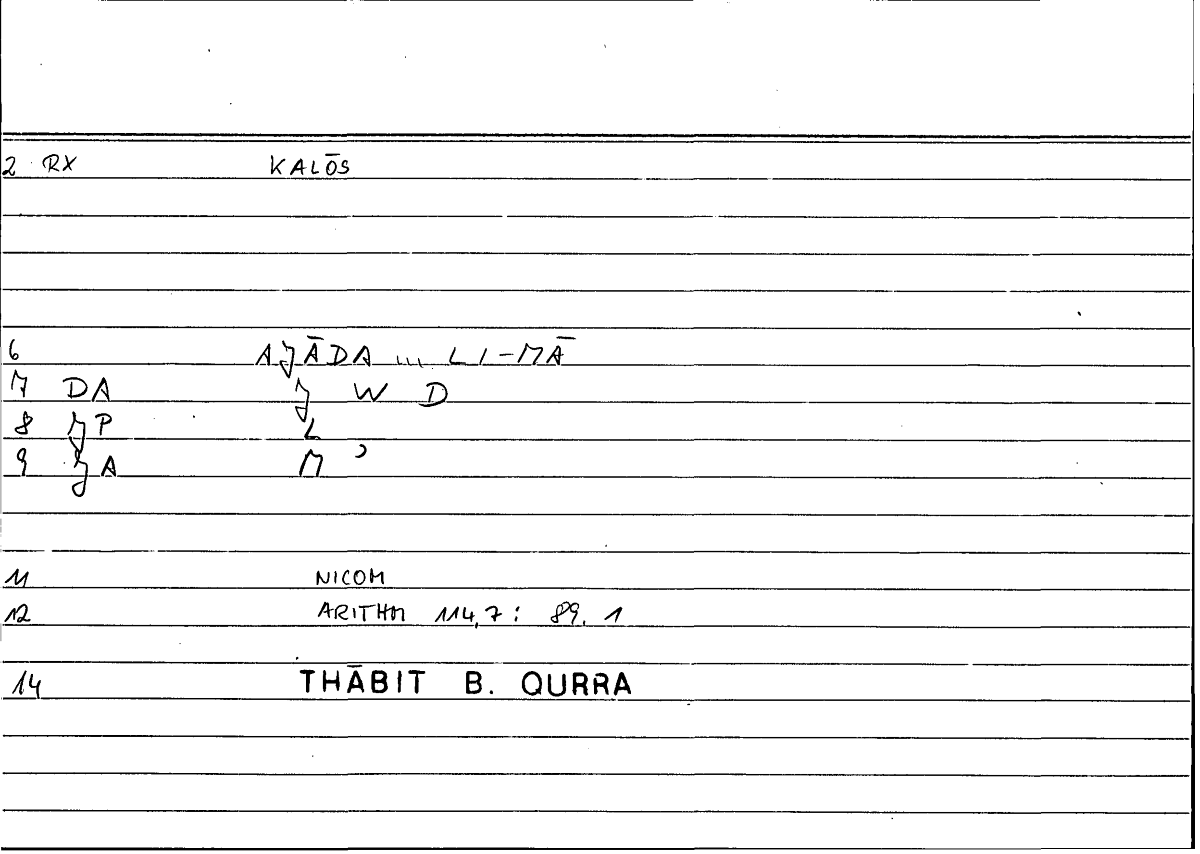 2 RX KALŌS
6 AJĀDA ... LI-MĀ
7 DA J W D
8 JP L
9 JA M ʾ
11 NICOM
12 ARITHM 114,7 : 89. 1
14 THĀBIT B. QURRA